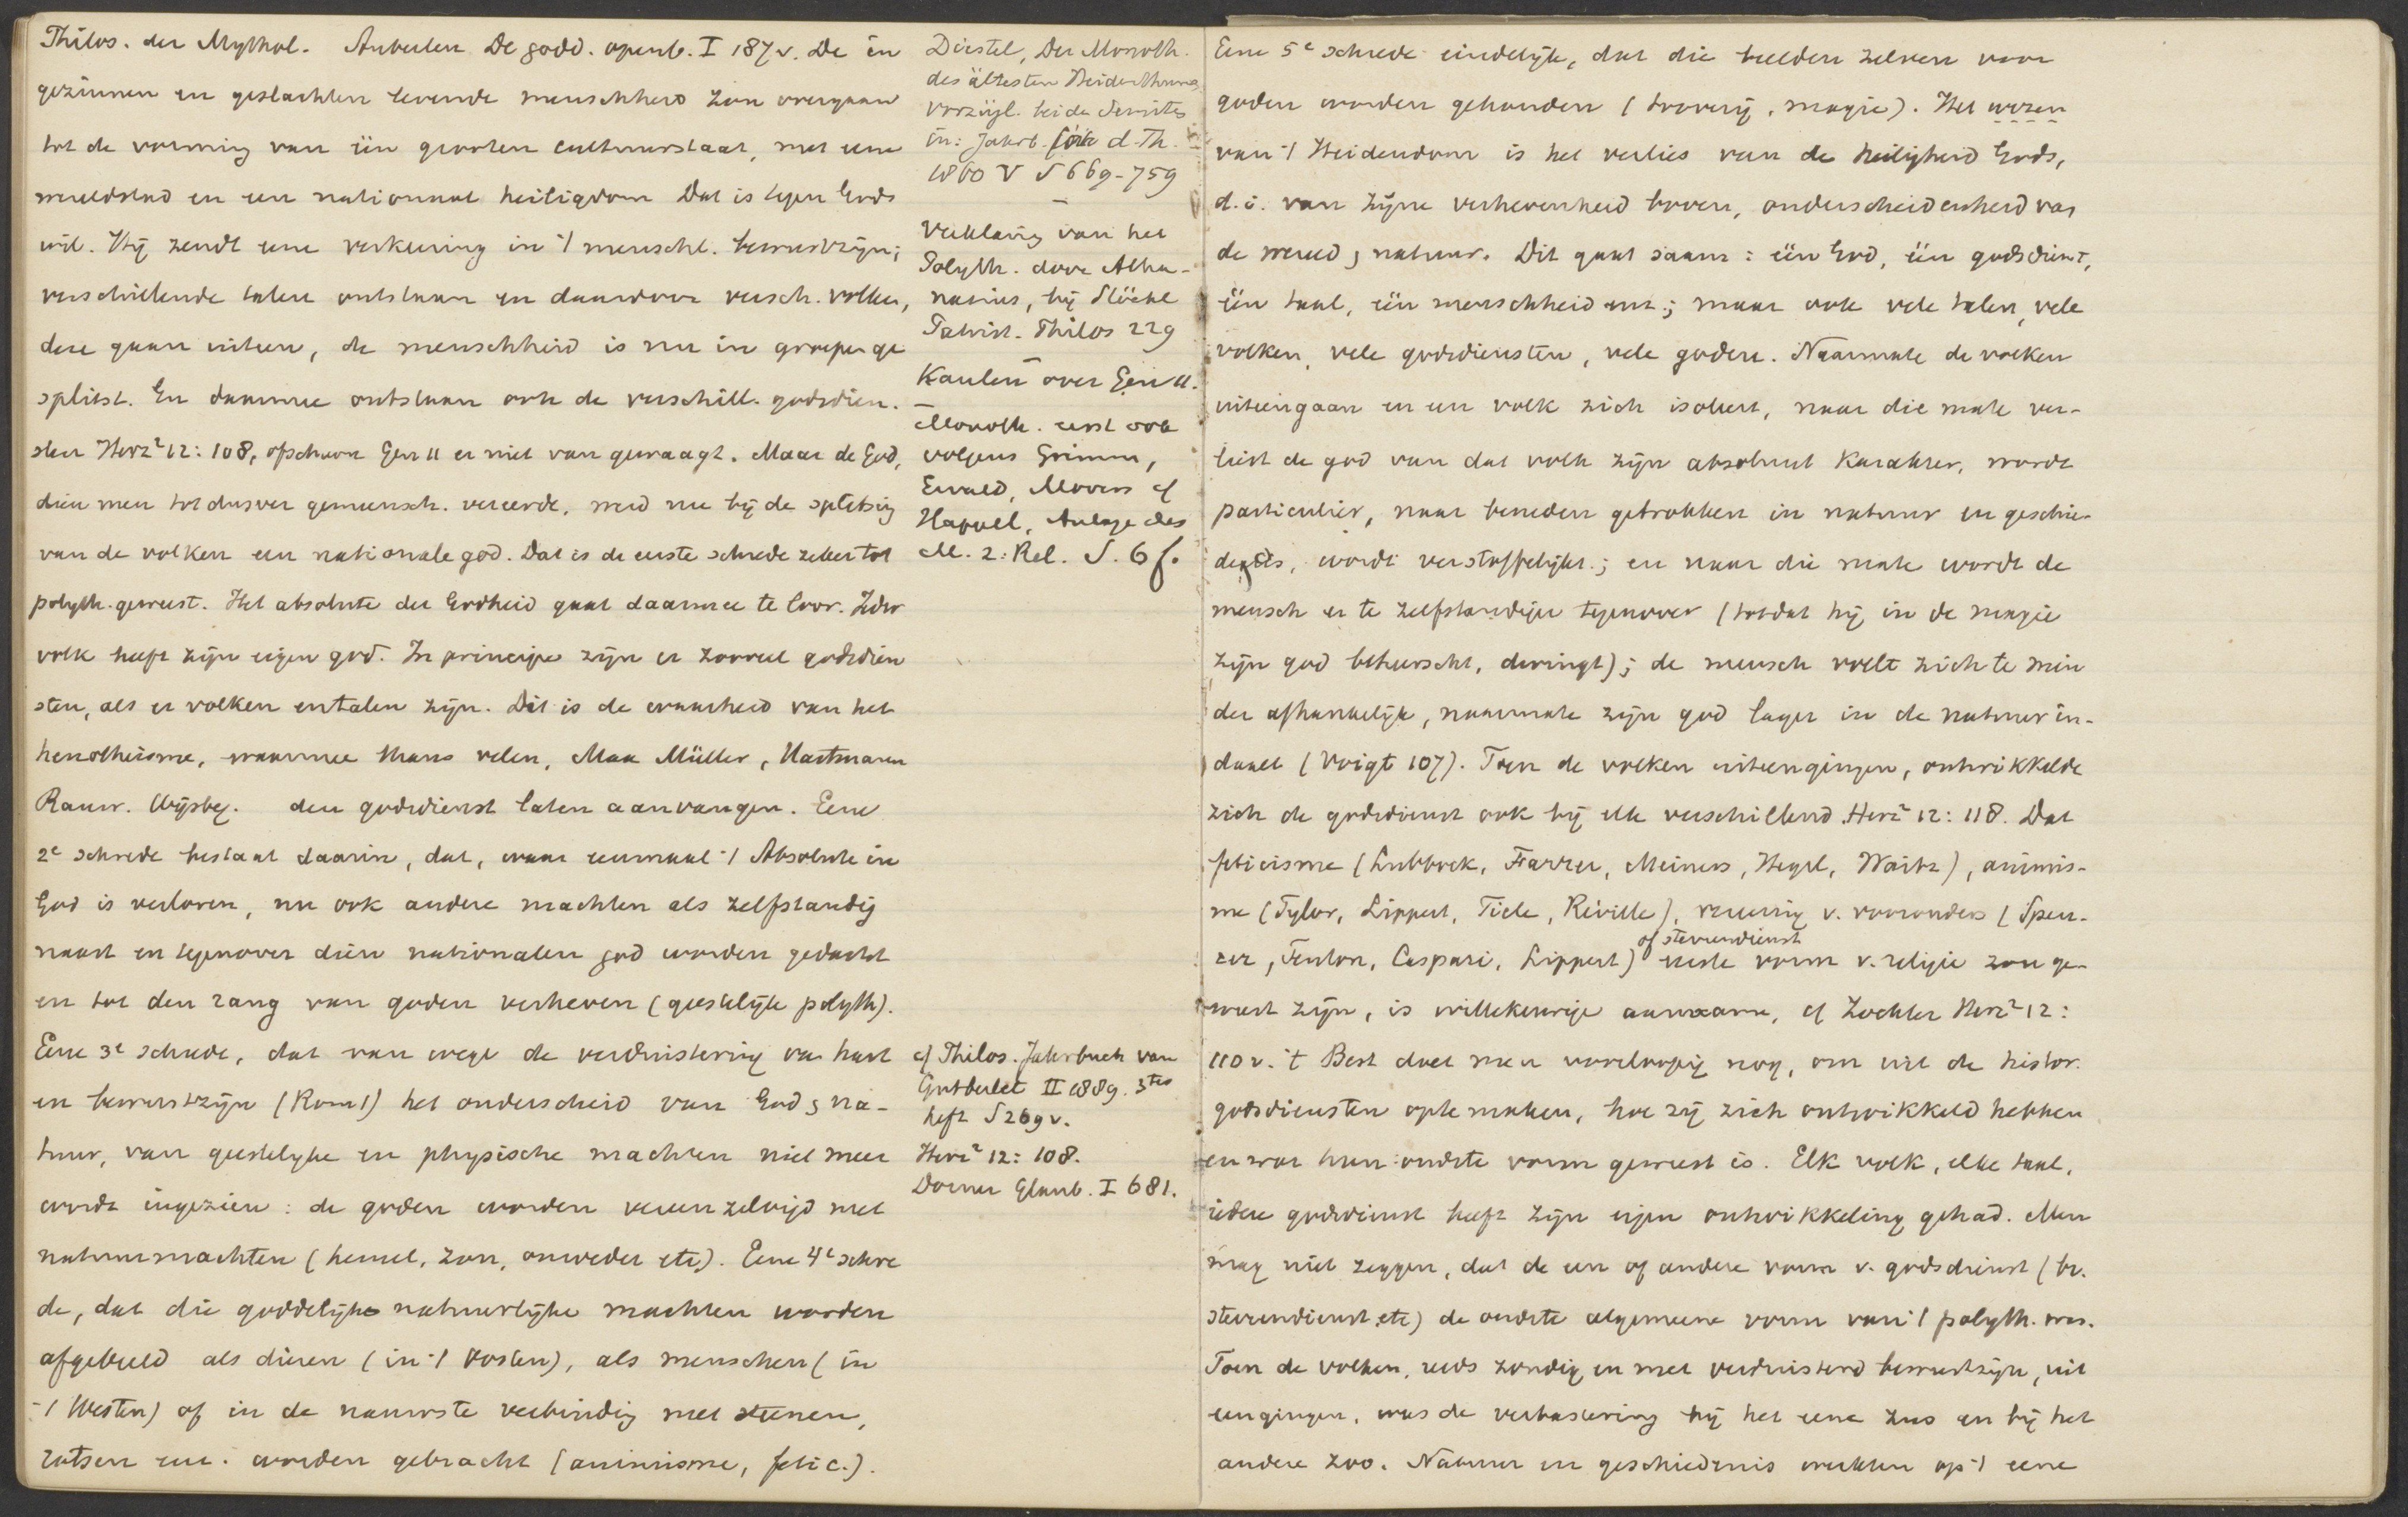 Philos. der Mythol. Auberlen De godd. openb. I 187 v. De in
gezinnen en geslachten levende menschheid zou overgaan
tot de vorming van één grooten cultuurstaat, met eene
wereldstad en een nationaal heiligdom Dat is tegen Gods
wil. Hij zendt eene verkeering in 't menschl. bewustzijn;
verschillende talen ontstaan en daardoor versch. volken,
deze gaan uiteen, de menschheid is nu in groepen ge
splitst. En daarmee ontstaan ook de verschill. godsdien-
sten Herz² 12: 108, ofschoon Gen 11 er niet van gewaagt. Maar de God,
dien men tot dusver gemeensch. vereerde, werd nu bij de splitsing
van de volken een nationale god. Dat is de eerste schrede zeker tot
polyth. geweest. Het absolute der Godheid gaat daarmee te loor. Ieder
volk heeft zijn eigen god. In principe zijn er zooveel godsdien
sten, als er volken en talen zijn. Dit is de waarheid van het
henotheisme, waarmee thans velen, Max Müller, Hartmann
Rauw. Wijsbeg. den godsdienst laten aanvangen. Eene
2e schrede bestaat daarin, dat, waar eenmaal 't Absolute in
God is verloren, nu ook andere machten als zelfstandig
naast en tegenover dien nationalen god worden gedacht
en tot den rang van goden verheven (geestelijk polyth).
Eene 3e schrede, dat van wege de verduistering van hart
en bewustzijn (Rom 1) het onderscheid van God & na-
tuur, van geestelijke en physische machten niet meer
wordt ingezien: de goden worden vereenzelvigd met
natuurmachten (hemel, zon, onweder etc). Eene 4e schre
de, dat die goddelijke natuurlijke machten worden
afgebeeld als dieren (in 't Oosten), als menschen (in
't Westen) of in de nauwste verbinding met steenen,
rotsen enz. worden gebracht (animisme, fetic.).
Diestel, Der Monoth.
des ältesten Heidenthums
vorzügl. bei den Semiten
in: Jahrb. für d. Th.
1860 V S 669-759
—
Verklaring van het
Polyth. door Atha-
nasius, bij Stöckl
Patrist. Philos 229
—
Kaulen over Gen 11.
—
Monoth. eerst ook
volgens Grimm,
Ewald, Movers cf
Happel, Anlage des
M. z. Rel. S. 6 f.
cf Philos. Jahrbuch von
Gutberlet II 1889. 3tes
heft S 269 v.
Herz² 12: 108.
Dorner Glaub. I 681.
Eene 5e schrede eindelijk, dat die beelden zelven voor
goden worden gehouden (toovery, magie). Het wezen
van 't Heidendom is het verlies van de heiligheid Gods,
d. i. van zijne verhevenheid boven, onderscheidenheid van
de wereld & natuur. Dit gaat saam: één God, één godsdienst,
één taal, één menschheid enz; maar ook vele talen, vele
volken, vele godsdiensten, vele goden. Naarmate de volken
uiteengaan en een volk zich isoleert, naar die mate ver-
liest de god van dat volk zijn absoluut karakter, wordt
particulier, naar beneden getrokken in natuur en geschie-
denis, wordt verstoffelijkt; en naar die mate wordt de
mensch er te zelfstandiger tegenover (totdat hij in de magie
zijn god beheerscht, dwingt); de mensch voelt zich te min
der afhankelijk, naarmate zijn god lager in de natuur in-
daalt (Voigt 107). Toen de volken uiteengingen, ontwikkelde
zich de godsdienst ook bij elk verschillend Herz² 12: 118. Dat
feticisme (Lubbock, Farrer, Meiners, Hegel, Waitz), animis-
me (Tylor, Lippert, Tiele, Réville), vereering v. voorouders (Spen-
cer, Fenton, Caspari, Lippert) of sterrendienst eerste vorm v. religie zou ge-
weest zijn, is willekeurige aanname, cf Zöckler Herz² 12:
110 v. 't Best doet men voorloopig nog, om uit de histor.
godsdiensten op te maken, hoe zij zich ontwikkeld hebben
en wat hun oudste vorm geweest is. Elk volk, elke taal,
iedere godsdienst heeft zijn eigen ontwikkeling gehad. Men
mag niet zeggen, dat de een of andere vorm v. godsdienst (bv.
sterrendienst etc) de oudste algemeene vorm van 't polyth. was.
Toen de volken, reeds zondig en met verduisterd bewustzijn, uit
eengingen, was de verbastering bij het eene zus en bij het
andere zoo. Natuur en geschiedenis werkten op 't eene